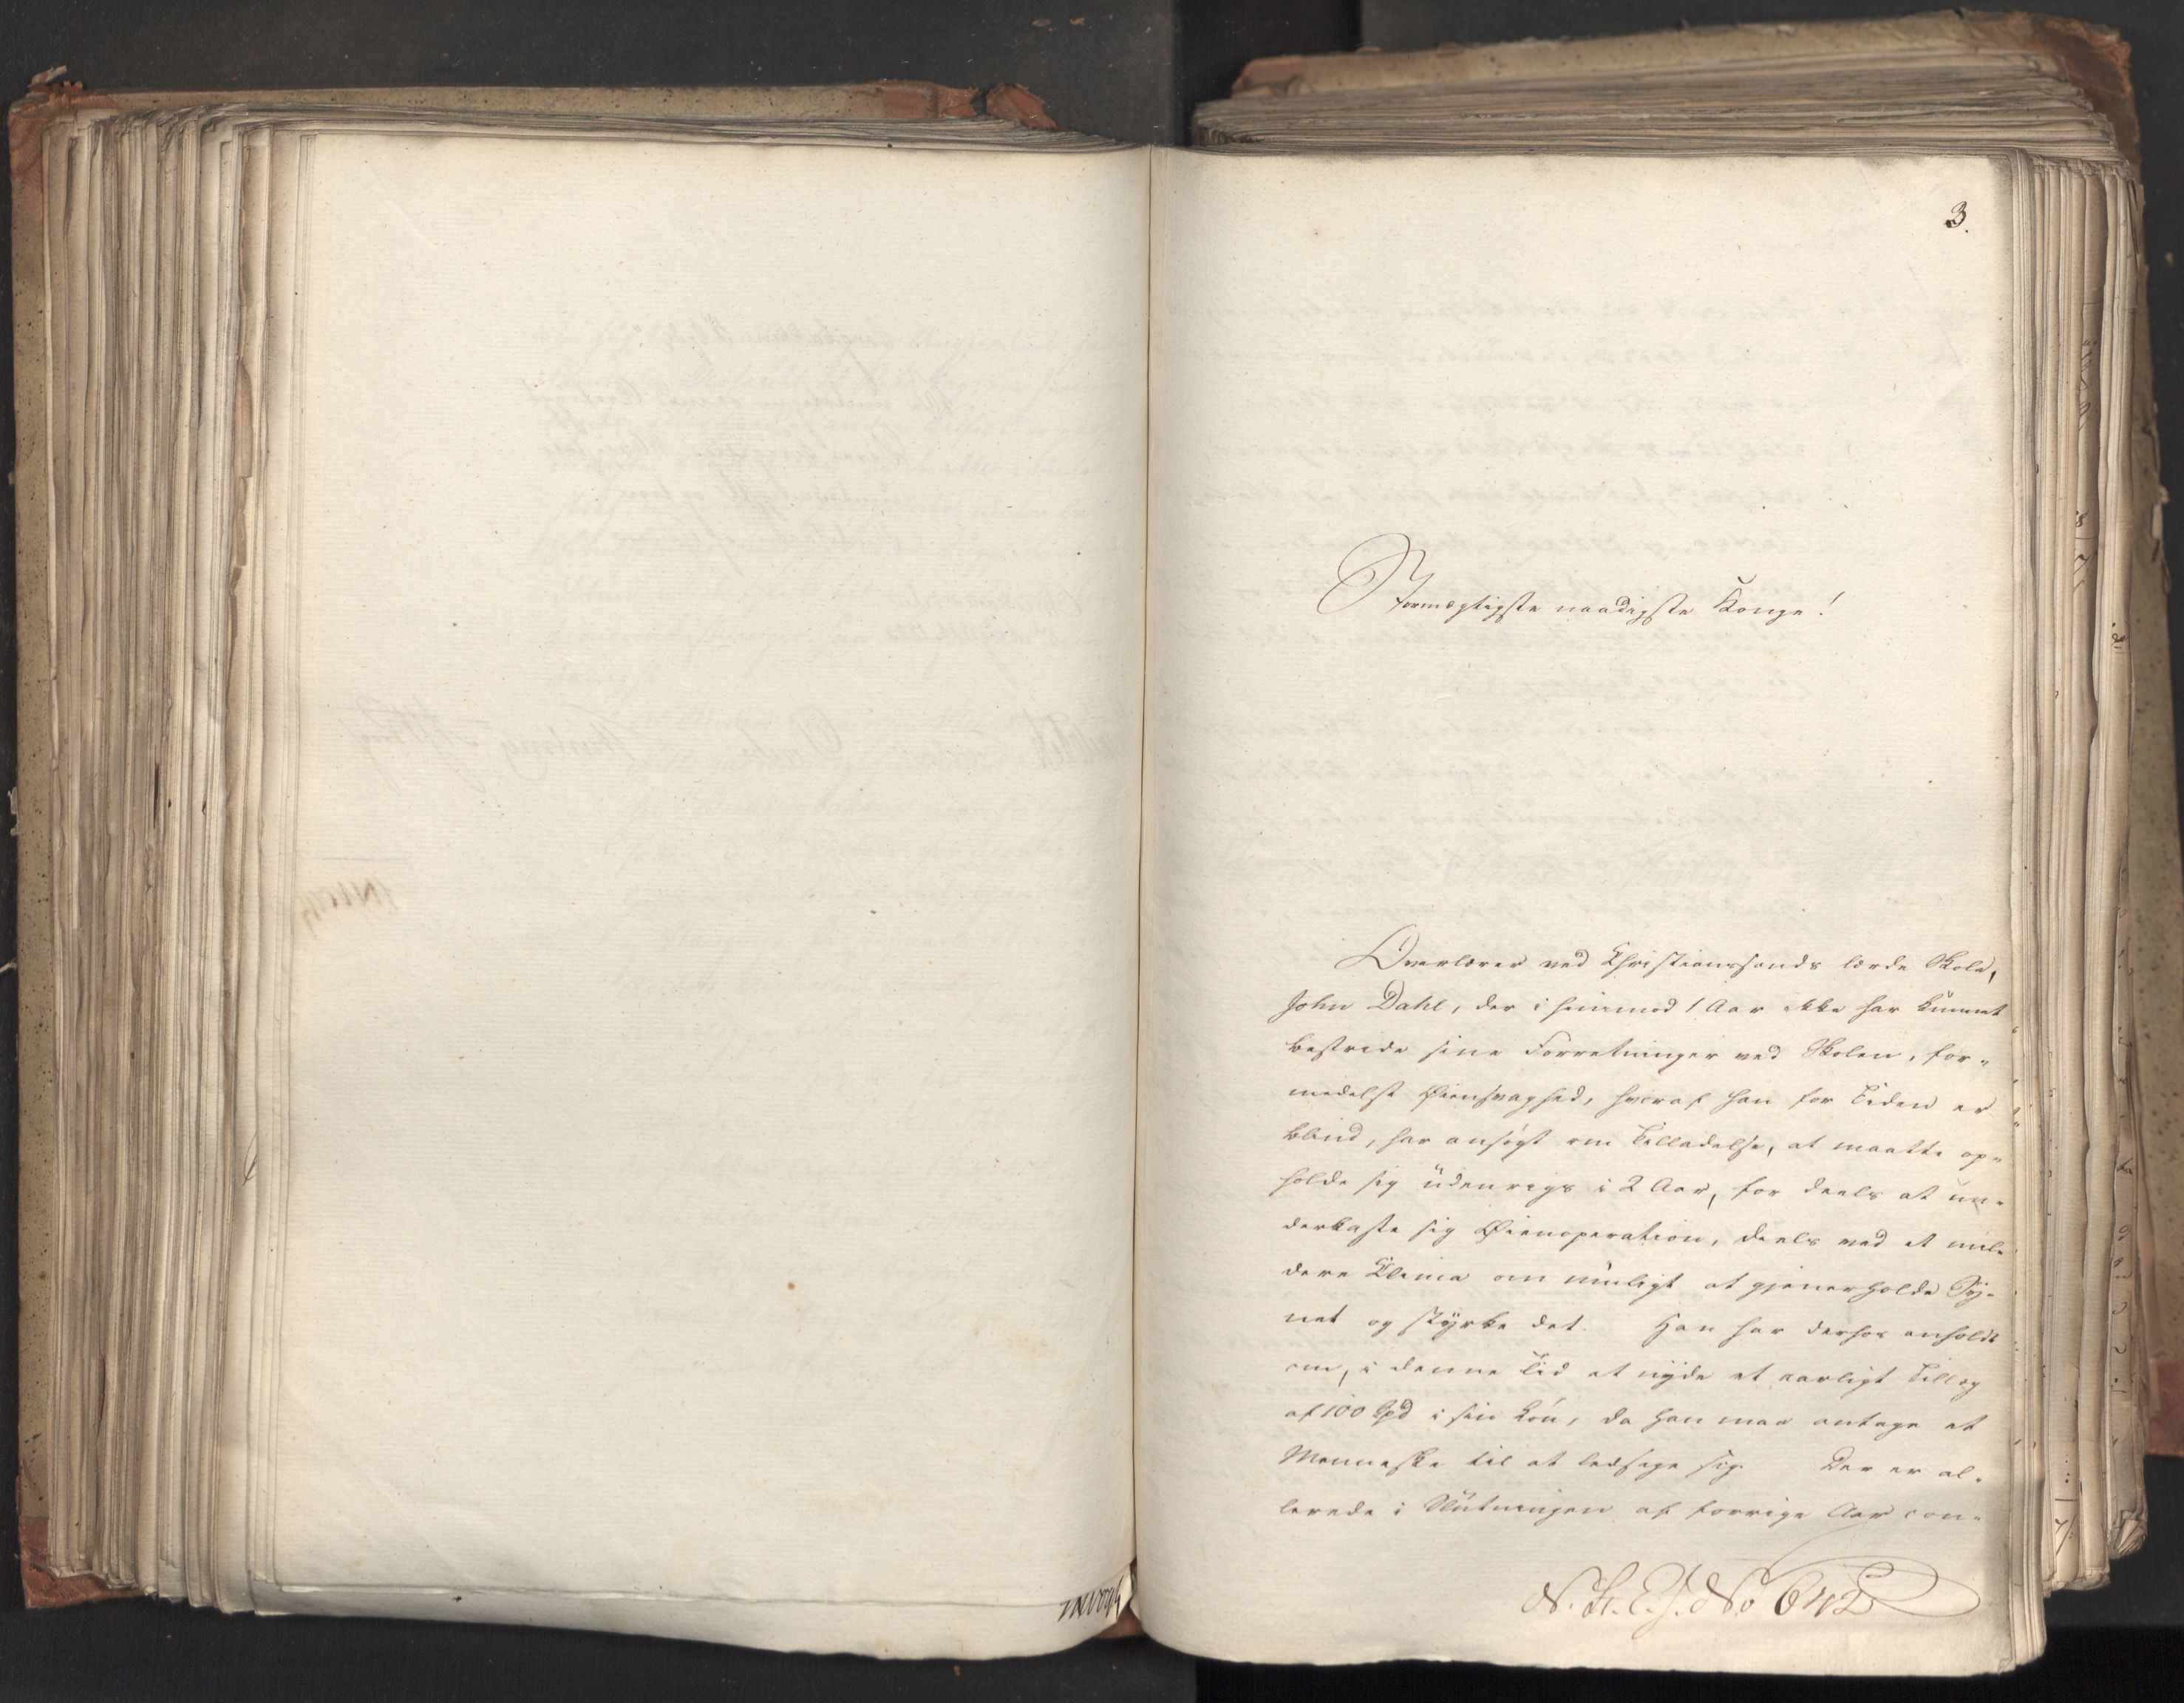 3.
Stormægtigste naadigste Konge!
Overlærer ved Christianssands lærde Skole,
John Dahl, der i henimod 1 Aar ikke har kunnet
bestride sine Forretninger ved Skolen, for-
medelst Øiensvaghed, hvoraf han for Tiden er
blind, har ansøgt om Tilladelse, at maatte op-
holde sig udenrigs i 2 Aar, for deels at un-
derkaste sig Øienoperation, deels ved et mil-
dere Klima om muligt at gjenerholde Sy-
net og styrke det. Han har derhos anholdt
om, i denne Tid at nyde et aarligt Tillæg
af 100 Spd i sin Løn, da han maa antage et
Menneske til at ledsage sig. Der er al-
lerede i Slutningen af forrige Aar con-